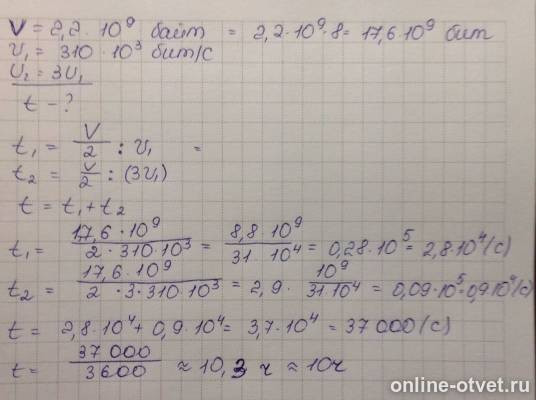 V = 2,2 · 10⁹ байт = 2,2 · 10⁹ · 8 = 17,6 · 10⁹ бит
υ₁ = 310 · 10³ бит/с
υ₂ = 3υ₁
t - ?
t₁ = V/2 : υ₁ =
t₂ = V/2 : (3υ₁)
t = t₁ + t₂
t₁ = 17,6 · 10⁹ / 2 · 310 · 10³ = 8,8 · 10⁹ / 31 · 10⁴ = 0,28 · 10⁵ = 2,8 · 10⁴ (с)
t₂ = 17,6 · 10⁹ / 2 · 3 · 310 · 10³ = 2,9 · 10⁹ / 31 · 10⁴ = 0,09 · 10⁵ = 0,9 · 10⁴ (с)
t = 2,8 · 10⁴ + 0,9 · 10⁴ = 3,7 · 10⁴ = 37 000 (с)
t = 37 000 / 3600 ≈ 10,3 ч ≈ 10ч
online-otvet.ru